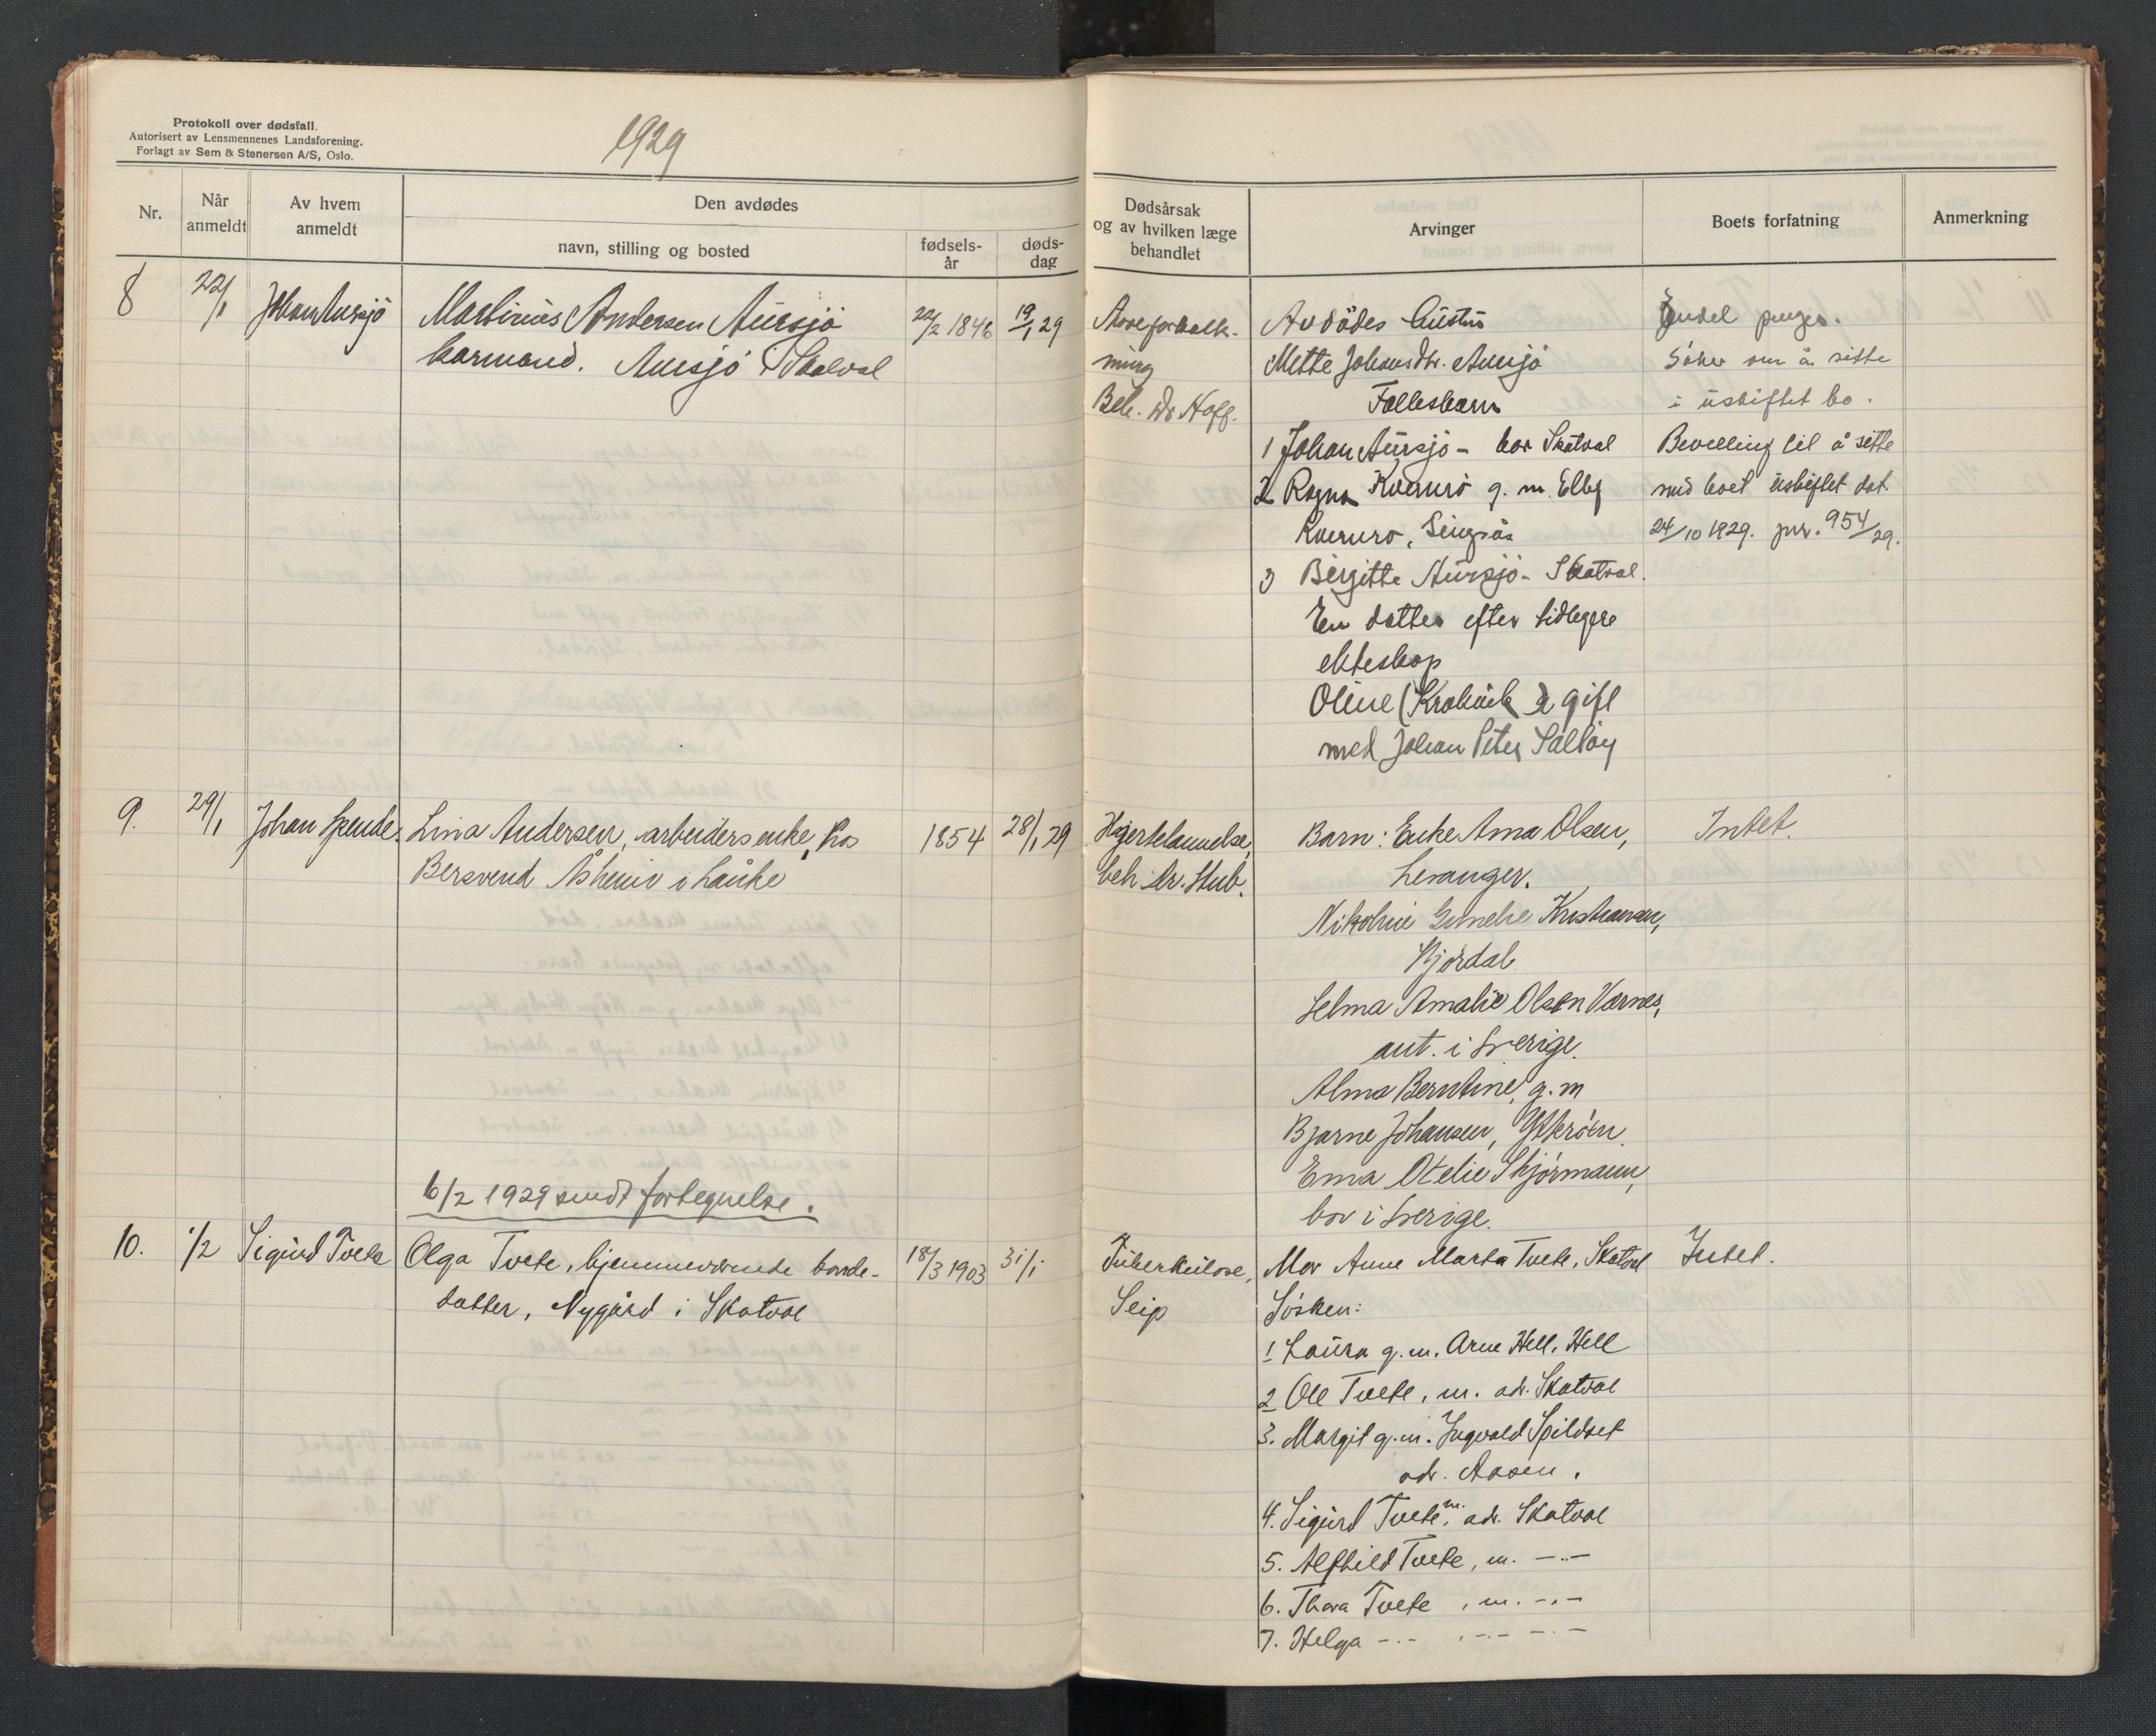 Protokoll over dødsfall.
Autorisert av Lensmennenes Landsforening.
Forlagt av Sem & Stenersen A/S, Oslo.
1929
Nr.
Når
anmeldt
Av hvem
anmeldt
Den avdødes
navn, stilling og bosted
fødsels-
år
døds-
dag
Dødsårsak
og av hvilken læge
behandlet
Arvinger
Boets forfatning
Anmerkning
8
22/1
Johan Aursjö
Martinius Andersen Aursjö
kårmand. Aursjö i Skatval
22/2 1846
19/1 29
Åreforkalk-
ning
Beh. Dr Hoff.
Avdödes hustru
Mette Johansdtr. Aursjö
Fællesbarn
1 Johan Aursjö - bor Skatval
2 Ragna Kvernrö g. m. Elling
Kvernrö, Singsås
3 Birgitte Aursjö - Skatval.
En datter efter tidligere
ekteskap
Oline (Krokvik) gift
med Johan Peter
Endel penger.
Söker om å sitte
i uskiftet bo.
Bevilling til å sitte
med boet uskiftet dat.
24/10 1929. jnr. 954/29.
9.
29/1
Johan
Lina Andersen, arbeidersenke, hos
Bersvend Åsheim i Lånke
1854
28/1 29
Hjertelammelse,
beh. dr. Stub.
Barn: Enke Anna Olsen,
Levanger.
Kristiansen,
Selma Amalie Olsen Værnes,
ant. i Sverige.
Alma Berntine, g. m
Bjarne Johansen, Ytterøen.
Emma Otelie Skjörmann,
bor i Sverige.
Intet.
6/2 1929 sendt fortegnelse.
10.
1/2
Sigurd Tvete
Olga Tvete, hjemmeværende bonde-
datter, Nygård i Skatval
18/3 1903
31/1
Tuberkulose,
Seip
Mor Anne Marta Tvete, Skatval
Sösken:
1 Laura g. m. Arne Hell, Hell
2 Ole Tvete, m. adr. Skatval
3. Margit g. m. Ingvald Spildset
adr. Aasen.
4. Sigurd Tvete, m. adr. Skatval
5. Alfhild Tvete, m. -..-
6. Thora Tvete, m. -.-
7. Helga -.- , -.- -.-
Intet.